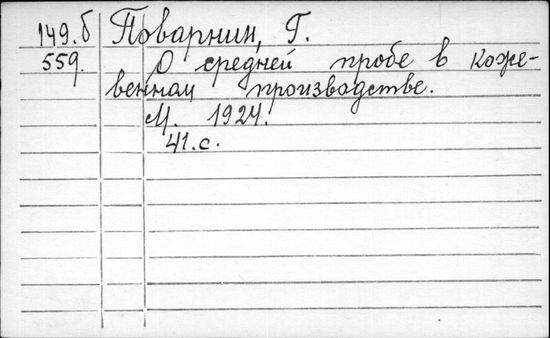 149.б Поварнин, Г.
559. О средней пробе в коже-
венном производстве.
М. 1924.
41.с.